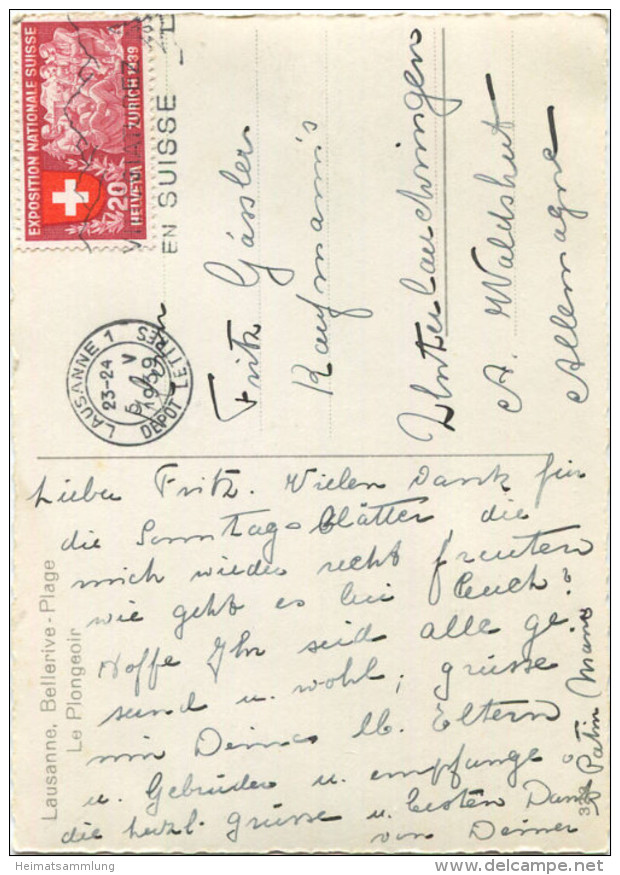 EXPOSITION NATIONALE SUISSE
ZURICH 1939
20
HELVETIA
EN SUISSE
LAUSANNE 1
23-24
V
1939
DÉPÔT LETTRES
Fritz Gässler
Kaufmann's
Unterlauchringen
A. Waldshut
Allemagne
Lausanne, Bellerive-Plage
Le Plongeoir
Lieber Fritz. Vielen Dank für
die Sonntags-Blätter, die
mich wieder recht freuten
wie geht es bei Euch?
Hoffe Ihr seid alle ge-
sund u. wohl, grüsse
mir Deine lb. Eltern
u. Gebrüder u. empfange
die herzl. grüsse u. besten Dank
von Deiner
Patin Maria
Heimatsammlung
delcampe.net